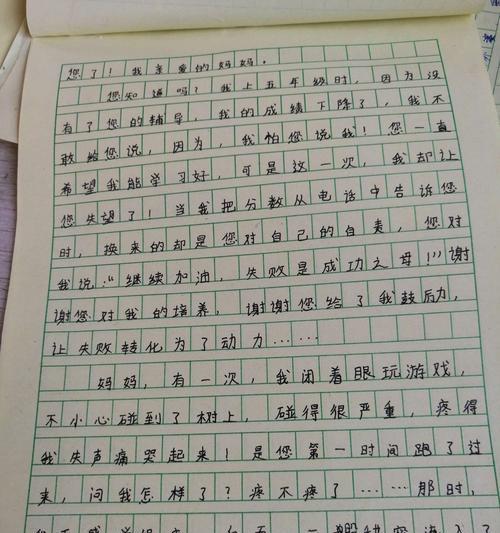 您了！我亲爱的妈妈。
您知道吗？我上五年级时，因为没
有了您的辅导，我的成绩下降了，我不
敢给您说，因为，我怕您说我！您一直
希望我能学习好，可是这一次，我却让
您失望了！当我把分数从电话中告诉您
时，换来的却是您对自己的自责，您对
我说："继续加油，失败是成功之母！"谢
谢您对我的培养，谢谢您给了我鼓后力，
让失败转化为了动力……
妈妈，有一次，我闭着眼玩游戏，
不小心碰到了树上，碰得很严重，疼得
我失声痛哭起来！是您第一时间跑了过
来，问我怎样了？疼不疼了……那时，